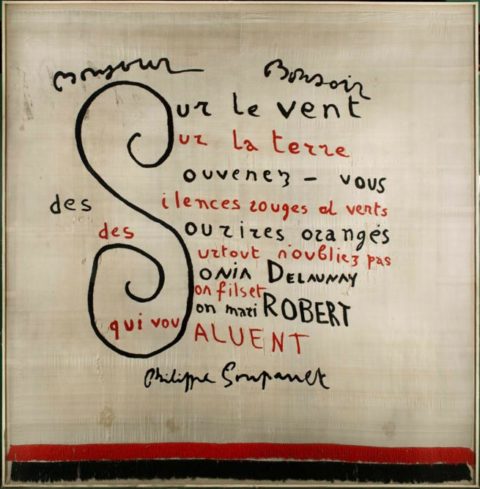 Bonjour Bonsoir
Sur le vent
Sur la terre
Souvenez - vous
des Silences rouges et verts
des Sourires orangés
Surtout n'oubliez pas
Sonia DELAUNAY
Son fils et
Son mari ROBERT
qui vou SALUENT
Philippe Soupault